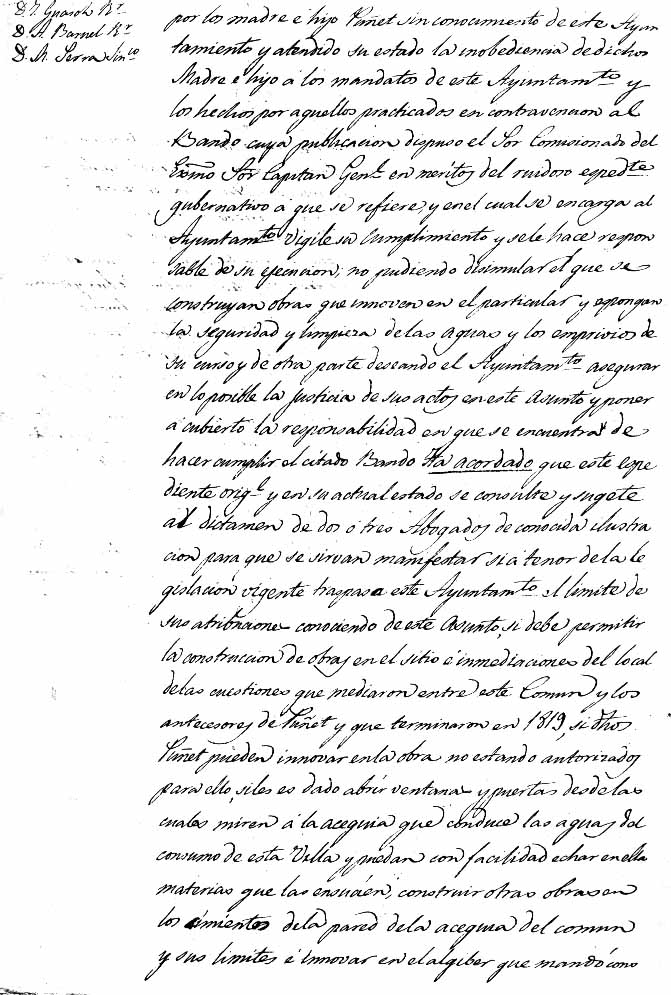 D. J. Guasch Rr.
D. A. Barnel Rr.
D. M. Serra Sinco
por los madre e hijo Piñet sin conocimiento de este Ayun
tamiento y atendido su estado la inobediencia de dichos
Madre e hijo á los mandatos de este Ayuntamto y
los hechos por aquellos practicados en contravencion al
Bando cuya publicacion dispuso el Sor Comisionado del
Exmo Sor Capitan Genl. en meritos del ruidoso espedte
gubernativo á que se refiere, y en el cual se encarga al
Ayuntamto vigile su cumplimiento y sele hace respon
sable de su ejecucion, no pudiendo disimular el que se
construyan obras que innoven en el particular y espongan
la seguridad y limpieza de las aguas y los emprivios de
su curso y de otra parte deseando el Ayuntamto asegurar
en lo posible la justicia de sus actos en este asunto y poner
á cubierto la responsabilidad en que se encuentra de
hacer cumplir el citado Bando Ha acordado que este espe
diente origl. y en su actual estado se consulte y sugete
al dictamen de dos ó tres Abogados de conocida ilustra
cion para que se sirvan manifestar si á tenor de la le
gislacion vigente traspasa este Ayuntamto el limite de
sus atribuciones conociendo de este asunto, si debe permitir
la construccion de obras en el sitio é inmediaciones del local
de las cuestiones que mediaron entre este Comun y los
antecesores de Piñet y que terminaron en 1819, si dhos
Piñet pueden innovar en la obra no estando autorizados
para ello, si les es dado abrir ventanas y puertas desde las
cuales miren á la acequia que conduce las aguas del
consumo de esta Villa y puedan con facilidad echar en ella
materias que las ensucien, construir otras obras en
los cimientos de la pared de la acequia del comun
y sus limites é innovar en el algiber que mandó cons